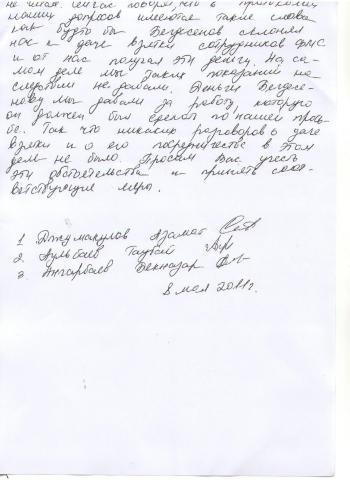 не читая. Сейчас поняли, что в протоколах
наших допросов имеются такие слова
как будто бы Бегесенов склонял
нас к даче взятки сотрудников ФМС
и от нас получал эти деньги. На са-
мом деле мы таких показаний на
следствии не давали. Деньги
мы давали за работу, которую
он должен был сделать по нашей прось-
бе. Так что никаких разговоров о даче
взятки и о его посредничестве в этом
деле не было. Просим Вас учесть
эти обстоятельства и принять соот-
ветствующие меры.
1 Джумакулов Азамат
2. Кульбаев Таубай
3. Анарбаев Бекназар
8 мая 2011г.